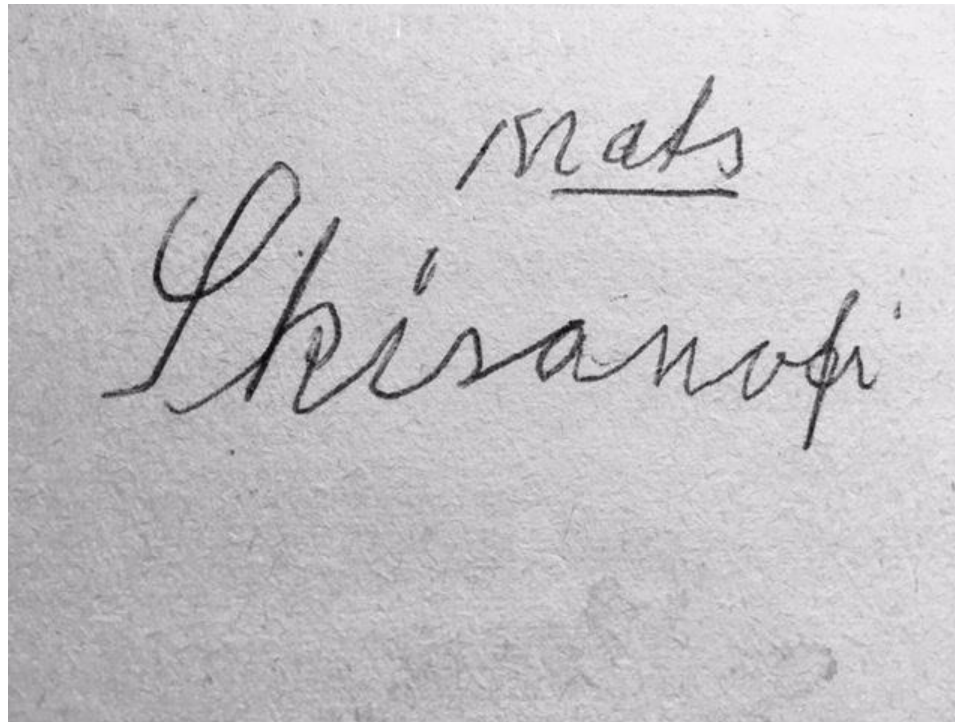 Mats
Skisanofi